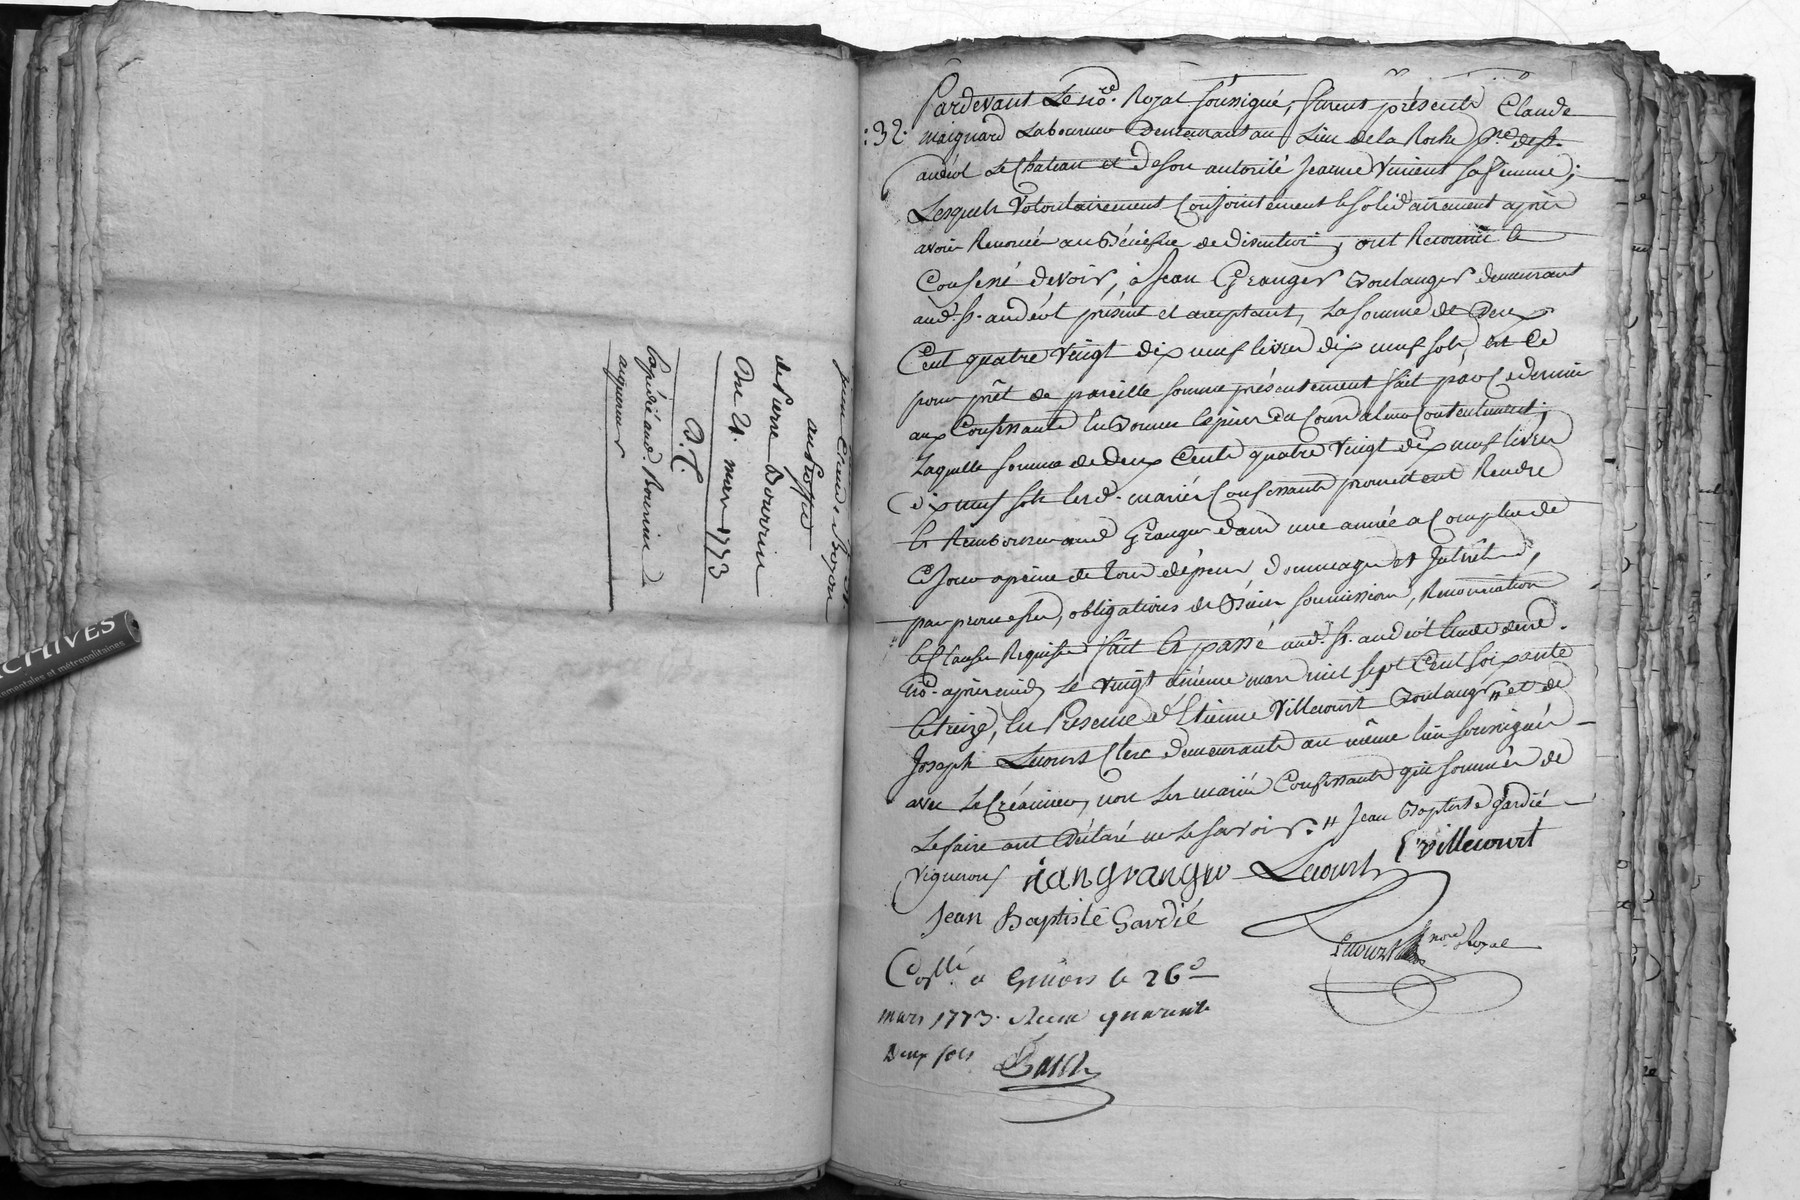 Claude Bozon
au proffit
de Pierre Bourrin
Du 21. mars 1773
B.C.
Expédié aud. Bourrin
acquereur
ARCHIVES
départementales et métropolitaines
:32.
Pardevant Le no.re Royal soussigné, furent présents Claude
maignard Laboureur Demeurant au Lieu de la Roche p.sse de st.
andéol Le Chateau et de son autorité Jeanne Vincent sa femme;
Lesquels Volontairement Conjointement et solidairement après
avoir Renoncé au Bénéfice de division, ont Reconnu et
Confessé devoir, à Jean Granger Boulanger demeurant
aud. st. andéol présent et acceptant, La somme de Deux
Cent quatre Vingt dix neuf livres dix neuf sols, et Ce
pour prêt de pareille somme présentement fait par Ce dernier
aux Confessants En Bonnes Espèces du Cours a leur Contentement;
Laquelle somme de Deux Cents quatre Vingt dix neuf livres
dix neuf sols lesd. mariés Confessants promettent Rendre
et Rembourser aud Granger dans une année a Compter de
Ce Jour a peine de tous dépens dommages et Intérêts,
par promesses, obligations de Biens soumissions, Renonciations
et Clauses Requises fait et passé aud. st. andéol Etude dud.
no.re après midy Le Vingt mars mil sept Cent soixante
et treize, En Presence d'Etienne Villecourt Boulanger # et de
Joseph Lecourt Clerc demeurants au même lieu soussignés
avec Le Créancier, non Les mariés Confessants qui sommés de
Le faire ont Déclaré ne Le savoir. # Jean Baptiste Gardié
Vigneron
jangranger Lecourt E Villecourt
Jean Baptiste Gardié
Lecourt no.re Royal
Co.llé a Givors le 26e
mars 1773. Recu quarente
Deux sols